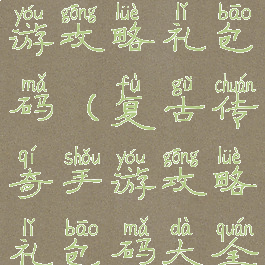 yóu gōng lüè lǐ bāo
游攻略礼包
mǎ fù gǔ chuán
码(复古传
qí shǒu yóu gōng lüè
奇手游攻略
lǐ bāo mǎ dà quán
礼包码大全